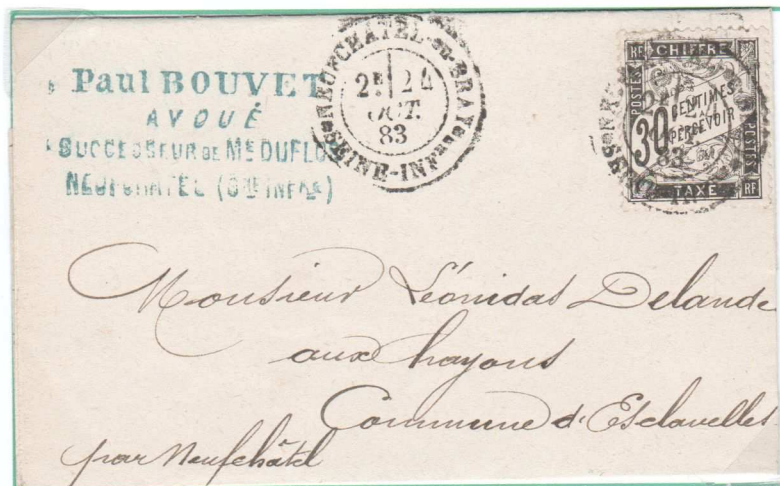 Paul BOUVET
AVOUÉ
SUCCESSEUR DE Me DUFLO
NEUFCHATEL (Sne INFRE)
NEUFCHATEL-EN-BRAY
2E 24
OCT.
83
SEINE-INFRE
RF CHIFFRE
POSTES
30 CENTIMES
À PERCEVOIR
POSTES
TAXE RF
Monsieur Léonidas Delande
aux hayons
Commune d'Esclavelles
par Neufchâtel